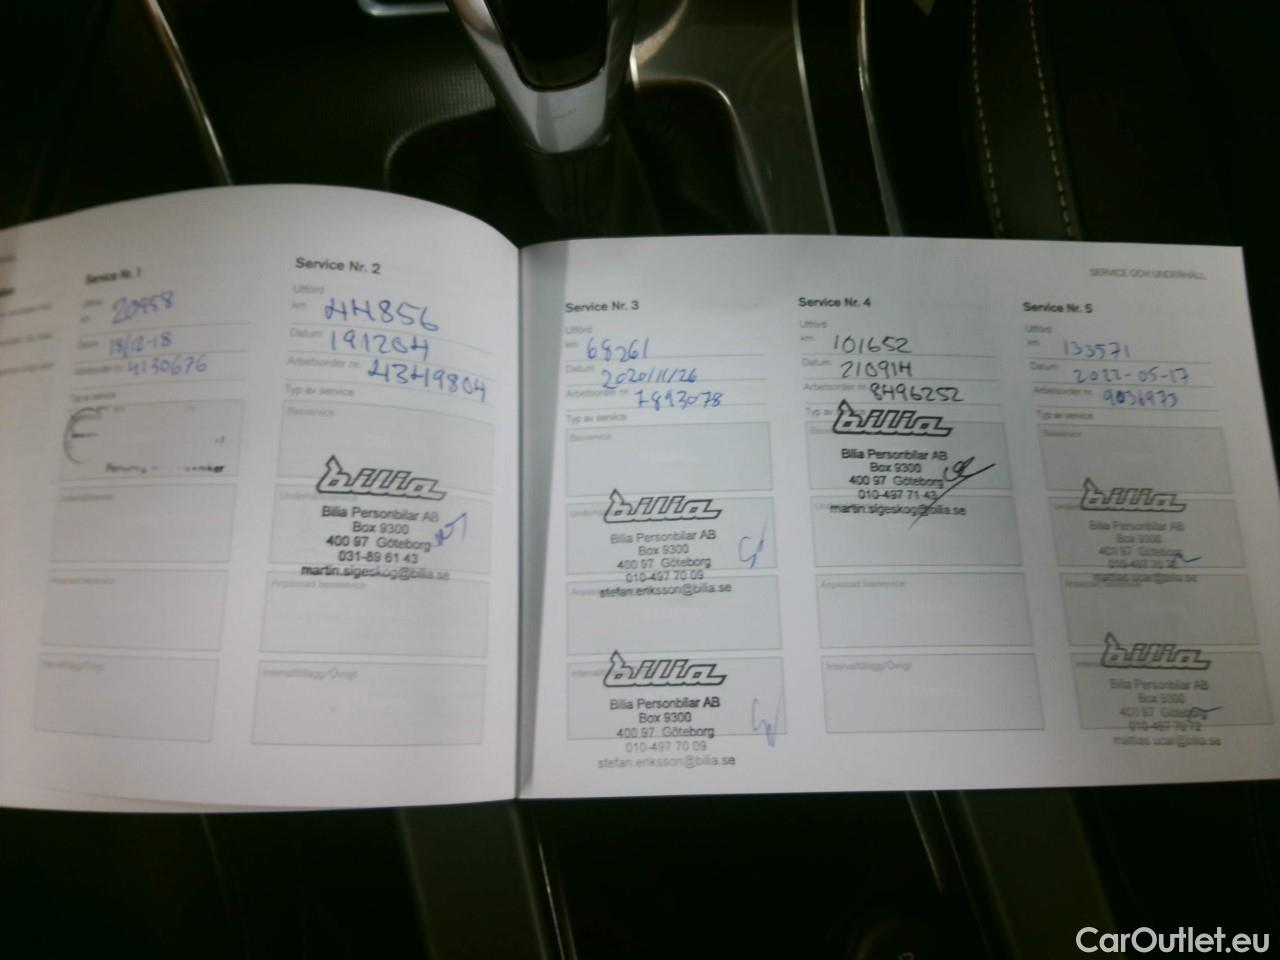 Service Nr. 1
Utförd
km 20958
Datum 18/12-18
Arbetsorder nr. 4130676
Typ av service
Service Nr. 2
Utförd
km 44856
Datum 191204
Arbetsorder nr. 4349804
Typ av service
Basservice
bilia
Bilia Personbilar AB
Box 9300
400 97 Göteborg
031-89 61 43
martin.sigeskog@bilia.se
Anpassad basservice
Intervalltillägg/Övrigt
SERVICE OCH UNDERHÅLL
Service Nr. 3
Utförd
km 68261
Datum 2020/11/26
Arbetsorder nr. 7893078
Typ av service
Basservice
bilia
Bilia Personbilar AB
Box 9300
400 97 Göteborg
010-497 70 09
stefan.eriksson@bilia.se
bilia
Bilia Personbilar AB
Box 9300
400 97 Göteborg
010-497 70 09
stefan.eriksson@bilia.se
Service Nr. 4
Utförd
km 101652
Datum 210914
Arbetsorder nr. 8496252
Typ av
bilia
Bilia Personbilar AB
Box 9300
400 97 Göteborg
010-497 71 43
martin.sigeskog@bilia.se
Anpassad basservice
Intervalltillägg/Övrigt
Service Nr. 5
Utförd
km 133571
Datum 2022-05-17
Arbetsorder nr. 9036973
Typ av service
Basservice
bilia
Bilia Personbilar AB
Box 9300
401 97 Göteborg
010-497 70 72
mattias.ucar@bilia.se
bilia
Bilia Personbilar AB
Box 9300
401 97 Göteborg
010-497 70 72
mattias.ucar@bilia.se
CarOutlet.eu